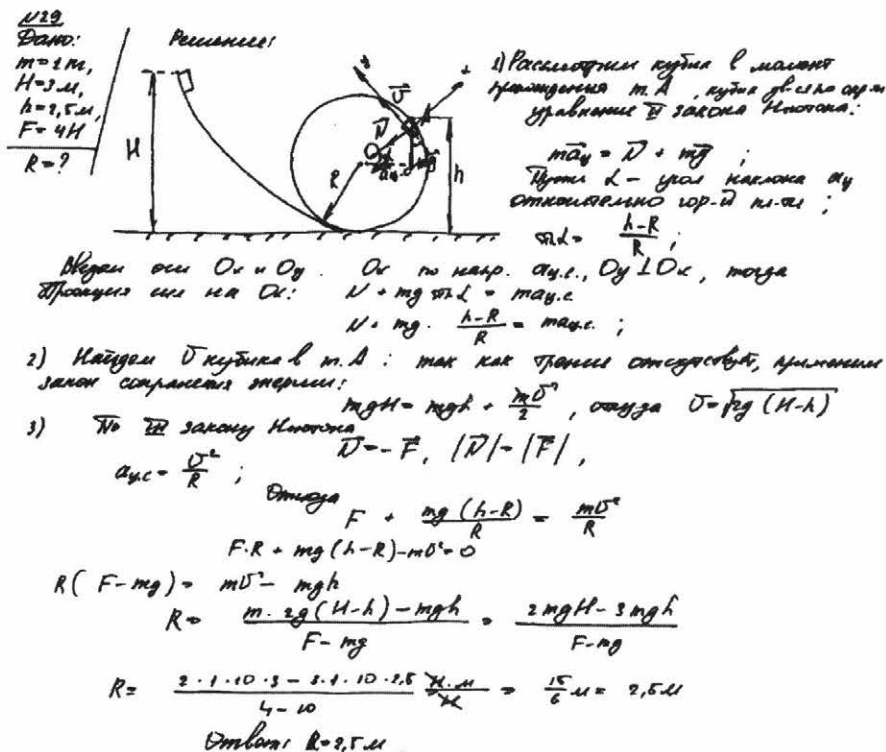 N29
Дано:
m=1 т,
H=3 м,
h=2,5 м,
F=4H
R=?
Решение:
H
R
N
υ
A
mg
h
1) Рассмотрим кубик в момент
прохождения т. A, кубик дв-ся по окр
уравнение II закона Ньютона:
ma⃗ц = N⃗ + mg⃗ ;
Пусть α – угол наклона aц
относительно гор-й пл-ти ;
sin α = (h-R)/R ;
Введем оси Ox и Oy. Ox по напр. aц.с., Oy ⊥ Ox, тогда
Проекция сил на Ox: N + mg sin α = maц.с
N + mg · (h-R)/R = maц.с. ;
2) Найдем υ кубика в т. A : так как трение отсутствует, применим
закон сохранения энергии:
mgH = mgh + mυ²/2, откуда υ = √2g (H-h)
3) По III закону Ньютона
N⃗ = -F⃗, |N⃗| = |F⃗|,
aц.с = υ²/R ;
Откуда
F + mg (h-R)/R = mυ²/R
F·R + mg (h-R) - mυ² = 0
R( F-mg) = mυ² - mgh
R = (m · 2g (H-h) - mgh)/(F-mg) = (2mgH - 3mgh)/(F-mg)
R = (2·1·10·3 - 3·1·10·2,5)/(4-10) H·м/H = 15/6 м = 2,5 м
Ответ: R=2,5 м